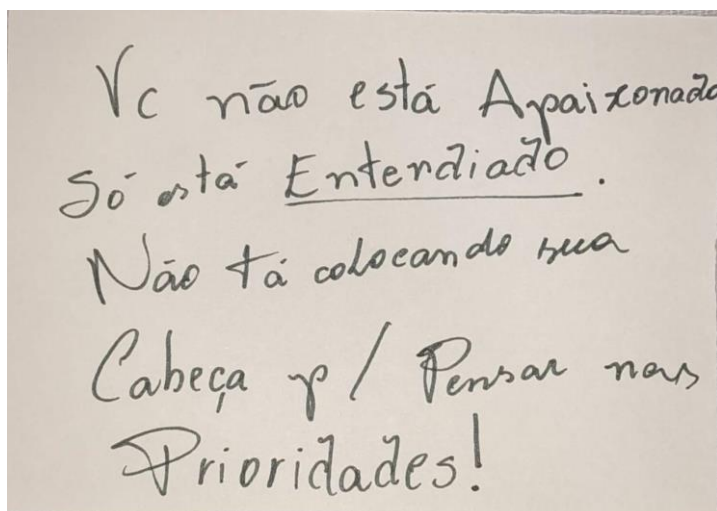 Vc não está Apaixonado
Só está Enterdiado.
Não tá colocando sua
Cabeça p/ Pensar nas
Prioridades!